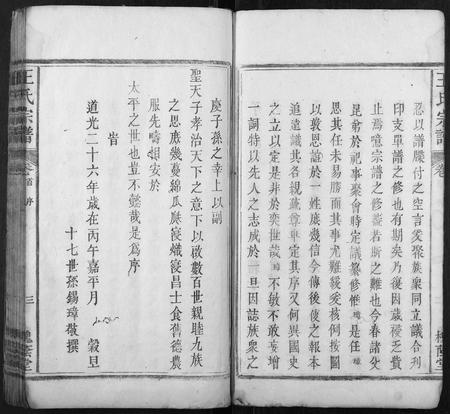 王氏宗譜
卷
忍以譜牒付之空言爰聚族眾同立議合刋
印支單譜之修也有期矣乃復因歲稔乏費
止焉噫宗譜之修蓋若斯之難也今春諸父
昆弟於祀事聚會時定議纂修惟 是任
思其任未易勝而其事尤難緩爰核例按圖
以敦恩誼於一姓庶幾信今傳後俾之報本
追遠識其各親義尊卑定其序又何異國史
之立以定是非於奕世哉 不敏不敢妄增
一詞特以先人之志成於一旦因誌族眾之
庚子孫之幸上以副
聖天子孝治天下之意下以啟數百世親睦九族
之思庶幾蔓綿瓜瓞寢熾寢昌士食舊德農
服先疇相安於
太平之世也豈不懿哉是為序
旹
道光二十六年歲在丙午嘉平月 穀旦
十七世孫錫璋敬撰
王氏宗譜
卷首 序
三
槐蔭堂